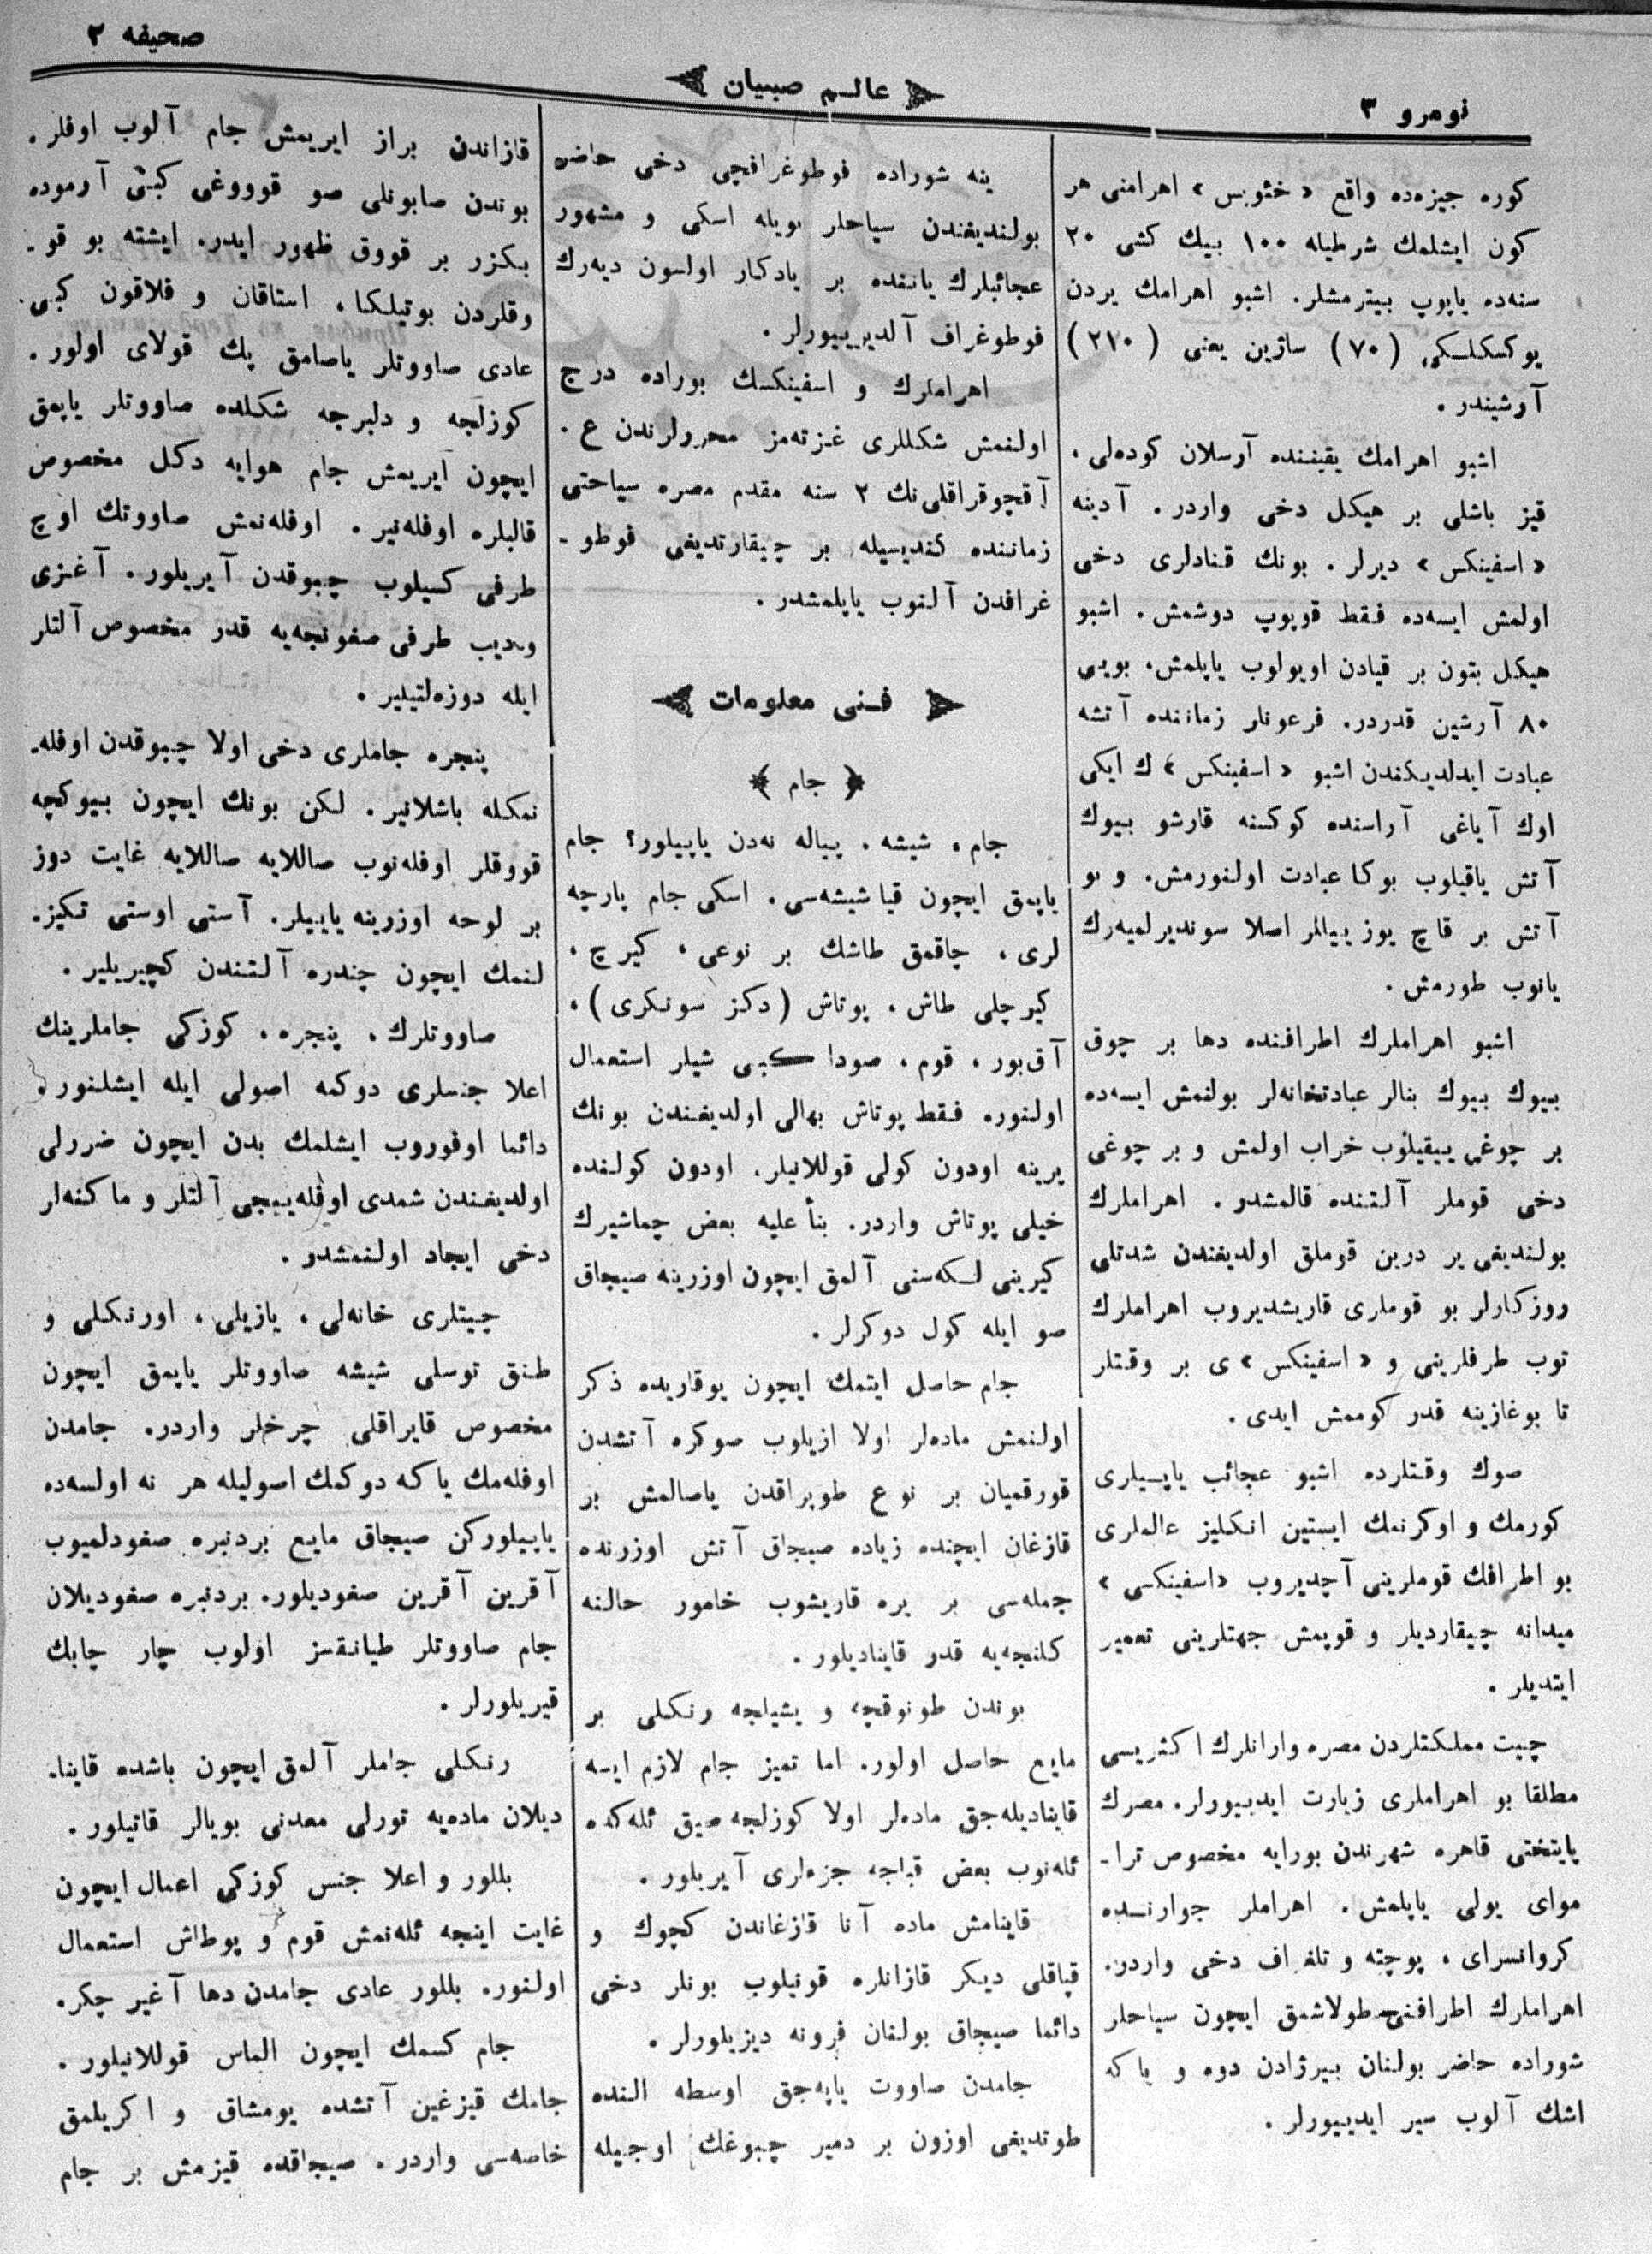 نومرو ۳
عالم صبیان
صحیفه ۲
كوره جیزه‌ده واقع «خئوبس» اهرامنی هر
كون ایشلمك شرطیله ۱۰۰ بیك كشی ۲۰
سنه‌ده یاپوپ بیترمشلر. اشبو اهرامك یردن
یوكسكلكی (۷۰) ساژین یعنی (۲۱۰)
آرشیندر.
اشبو اهرامك یقیننده آرسلان كوده‌لی،
قیز باشلی بر هیكل دخی واردر. آدینه
«اسفینكس» دیرلر. بونك قنادلری دخی
اولمش ایسه‌ده فقط قوپوپ دوشمش. اشبو
هیكل بتون بر قیادن اویولوب یاپلمش، بویی
۸۰ آرشین قدردر. فرعونلر زماننده آتشه
عبادت ایدلدیكندن اشبو «اسفینكس»ك ایكی
اوك آیاغی آراسنده كوكسنه قارشو بیوك
آتش یاقیلوب بوكا عبادت اولنورمش. و بو
آتش بر قاچ یوز ییللر اصلا سوندیرلمیه‌رك
یانوب طورمش.
اشبو اهراملرك اطرافنده دها بر چوق
بیوك بیوك بنالر عبادتخانه‌لر بولنمش ایسه‌ده
بر چوغی ییقیلوب خراب اولمش و بر چوغی
دخی قوملر آلتنده قالمشدر. اهراملرك
بولندیغی یر درین قوملق اولدیغندن شدتلی
روزكارلر بو قوملری قاریشدیروب اهراملرك
توب طرفلرینی و «اسفینكس»ی بر وقتلر
تا بوغازینه قدر كوممش ایدی.
صوك وقتلرده اشبو عجائب یاپیلری
كورمك و اوكرنمك ایستین انكلیز عالملری
بو اطرافك قوملرینی آچدیروب «اسفینكسی»
میدانه چیقاردیلر و قوپمش جهتلرینی تعمیر
ایتدیلر.
چیت مملكتلردن مصره وارانلرك اكثریسی
مطلقا بو اهراملری زیارت ایدییورلر. مصرك
پایتختی قاهره شهرندن بورایه مخصوص ترا-
موای یولی یاپلمش. اهراملر جوارنده
كروانسرای، پوچته و تلغراف دخی واردر.
اهراملرك اطرافنی طولاشمق ایچون سیاحلر
شوراده حاضر بولنان بیرژادن دوه و یا كه
اشك آلوب سیر ایدییورلر.
ینه شوراده فوطوغرافچی دخی حاضر
بولندیغندن سیاحلر بویله اسكی و مشهور
عجائبلرك یاننده بر یادكار اولسون دیه‌رك
فوطوغراف آلدیرییورلر.
اهراملرك و اسفینكسك بوراده درج
اولنمش شكللری غزته‌مز محررلرندن ع.
آقچوقراقلی‌نك ۲ سنه مقدم مصره سیاحتی
زماننده كندیسیله بر چیقارتدیغی فوطو-
غرافدن آلنوب یاپلمشدر.
فنی معلومات
﴿ جام ﴾
جام، شیشه، پیاله نه‌دن یاپیلور؟ جام
یاپمق ایچون قیا شیشه‌سی. اسكی جام پارچه
لری، چاقمق طاشك بر نوعی، كیرچ،
كیرچلی طاش، پوتاش (دكز سونكری)،
آق‌بور، قوم، صودا كبی شیلر استعمال
اولنور. فقط پوتاش بهالی اولدیغندن بونك
یرینه اودون كولی قوللانیلر. اودون كولنده
خیلی پوتاش واردر. بنأ علیه بعض چماشیرك
كیرینی لكه‌سنی آلمق ایچون اوزرینه صیجاق
صو ایله كول دوكرلر.
جام حاصل ایتمك ایچون یوقاریده ذكر
اولنمش ماده‌لر اولا ازیلوب صوكره آتشدن
قورقمیان بر نوع طوپراقدن یاصالمش بر
قازغان ایچنده زیاده صیجاق آتش اوزرنده
جمله‌سی بر یره قاریشوب خامور حالنه
كلنجه‌یه قدر قاینادیلور.
بوندن طونوقچه و یشیلجه رنكلی بر
مایع حاصل اولور. اما تمیز جام لازم ایسه
قاینادیله‌جق ماده‌لر اولا كوزلجه صیق ئله‌كده
ئله‌نوب بعض قباجه جزءلری آیریلور.
قاینامش ماده آنا قازغاندن كچوك و
قپاقلی دیكر قازانلره قونیلوب بونلر دخی
دائما صیجاق بولنان فرونه دیزیلورلر.
جامدن صاووت یاپه‌جق اوسطه النده
طوتدیغی اوزون بر دمیر چبوغك اوجیله
قازاندن براز ایریمش جام آلوب اوفلر.
بوندن صابونلی صو قوووغی كبی آرموده
بكزر بر قووق ظهور ایدر. ایشته بو قو-
وقلردن بوتیلكا، استاقان و فلاقون كبی
عادی صاووتلر یاصامق پك قولای اولور.
كوزلجه و دلبرجه شكلده صاووتلر یاپمق
ایچون ایریمش جام هوایه دكل مخصوص
قالبلره اوفله‌نیر. اوفله‌نمش صاووتك اوچ
طرفی كسیلوب چبوقدن آیریلور. آغزی
ودیب طرفی صغونجه‌یه قدر مخصوص آلتلر
ایله دوزه‌لتیلیر.
پنجره جاملری دخی اولا چبوقدن اوفله-
نمكله باشلانیر. لكن بونك ایچون بیوكچه
قووقلر اوفله‌نوب صاللایه صاللایه غایت دوز
بر لوحه اوزرینه یاییلر. آستی اوستی تكیز-
لنمك ایچون چندره آلتندن كچیریلیر.
صاووتلرك، پنجره، كوزكی جاملرینك
اعلا جنسلری دوكمه اصولی ایله ایشلنور.
دائما اوفوروب ایشلمك بدن ایچون ضررلی
اولدیغندن شمدی اوفله‌ییجی آلتلر و ماكنه‌لر
دخی ایجاد اولنمشدر.
چیتلری خانه‌لی، یازیلی، اورنكلی و
طنق توسلی شیشه صاووتلر یاپمق ایچون
مخصوص قایراقلی چرخلر واردر. جامدن
اوفله‌مك یا كه دوكمك اصولیله هر نه اولسه‌ده
یاپیلوركن صیجاق مایع بردنبره صغودلمیوب
آقرین آقرین صغودیلور. بردنبره صغودیلان
جام صاووتلر طیانقسز اولوب چار چابك
قیریلورلر.
رنكلی جاملر آلمق ایچون باشده قاینا-
دیلان ماده‌یه تورلی معدنی بویالر قاتیلور.
بللور و اعلا جنس كوزكی اعمال ایچون
غایت اینجه ئله‌نمش قوم و پوطاش استعمال
اولنور. بللور عادی جامدن دها آغیر چكر.
جام كسمك ایچون الماس قوللانیلور.
جامك قیزغین آتشده یومشاق و اكریلمق
خاصه‌سی واردر. صیجاقده قیزمش بر جام